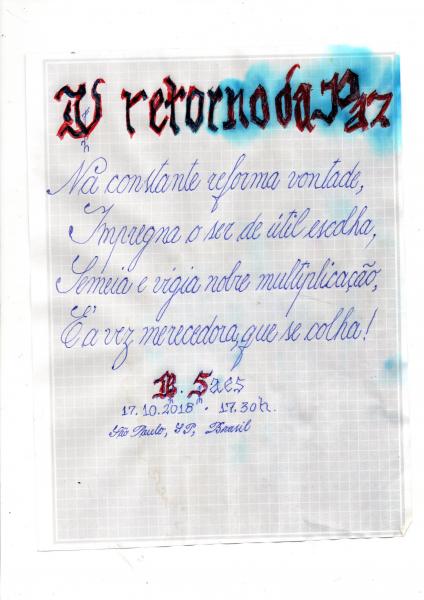 IV retorno da Paz
Na constante reforma vontade,
Impregna o ser de útil escolha,
Semeia e vigia nobre multiplicação,
É a vez merecedora, que se colha!
B. Saes
17.10.2018 - 17.30h.
São Paulo, SP, Brasil